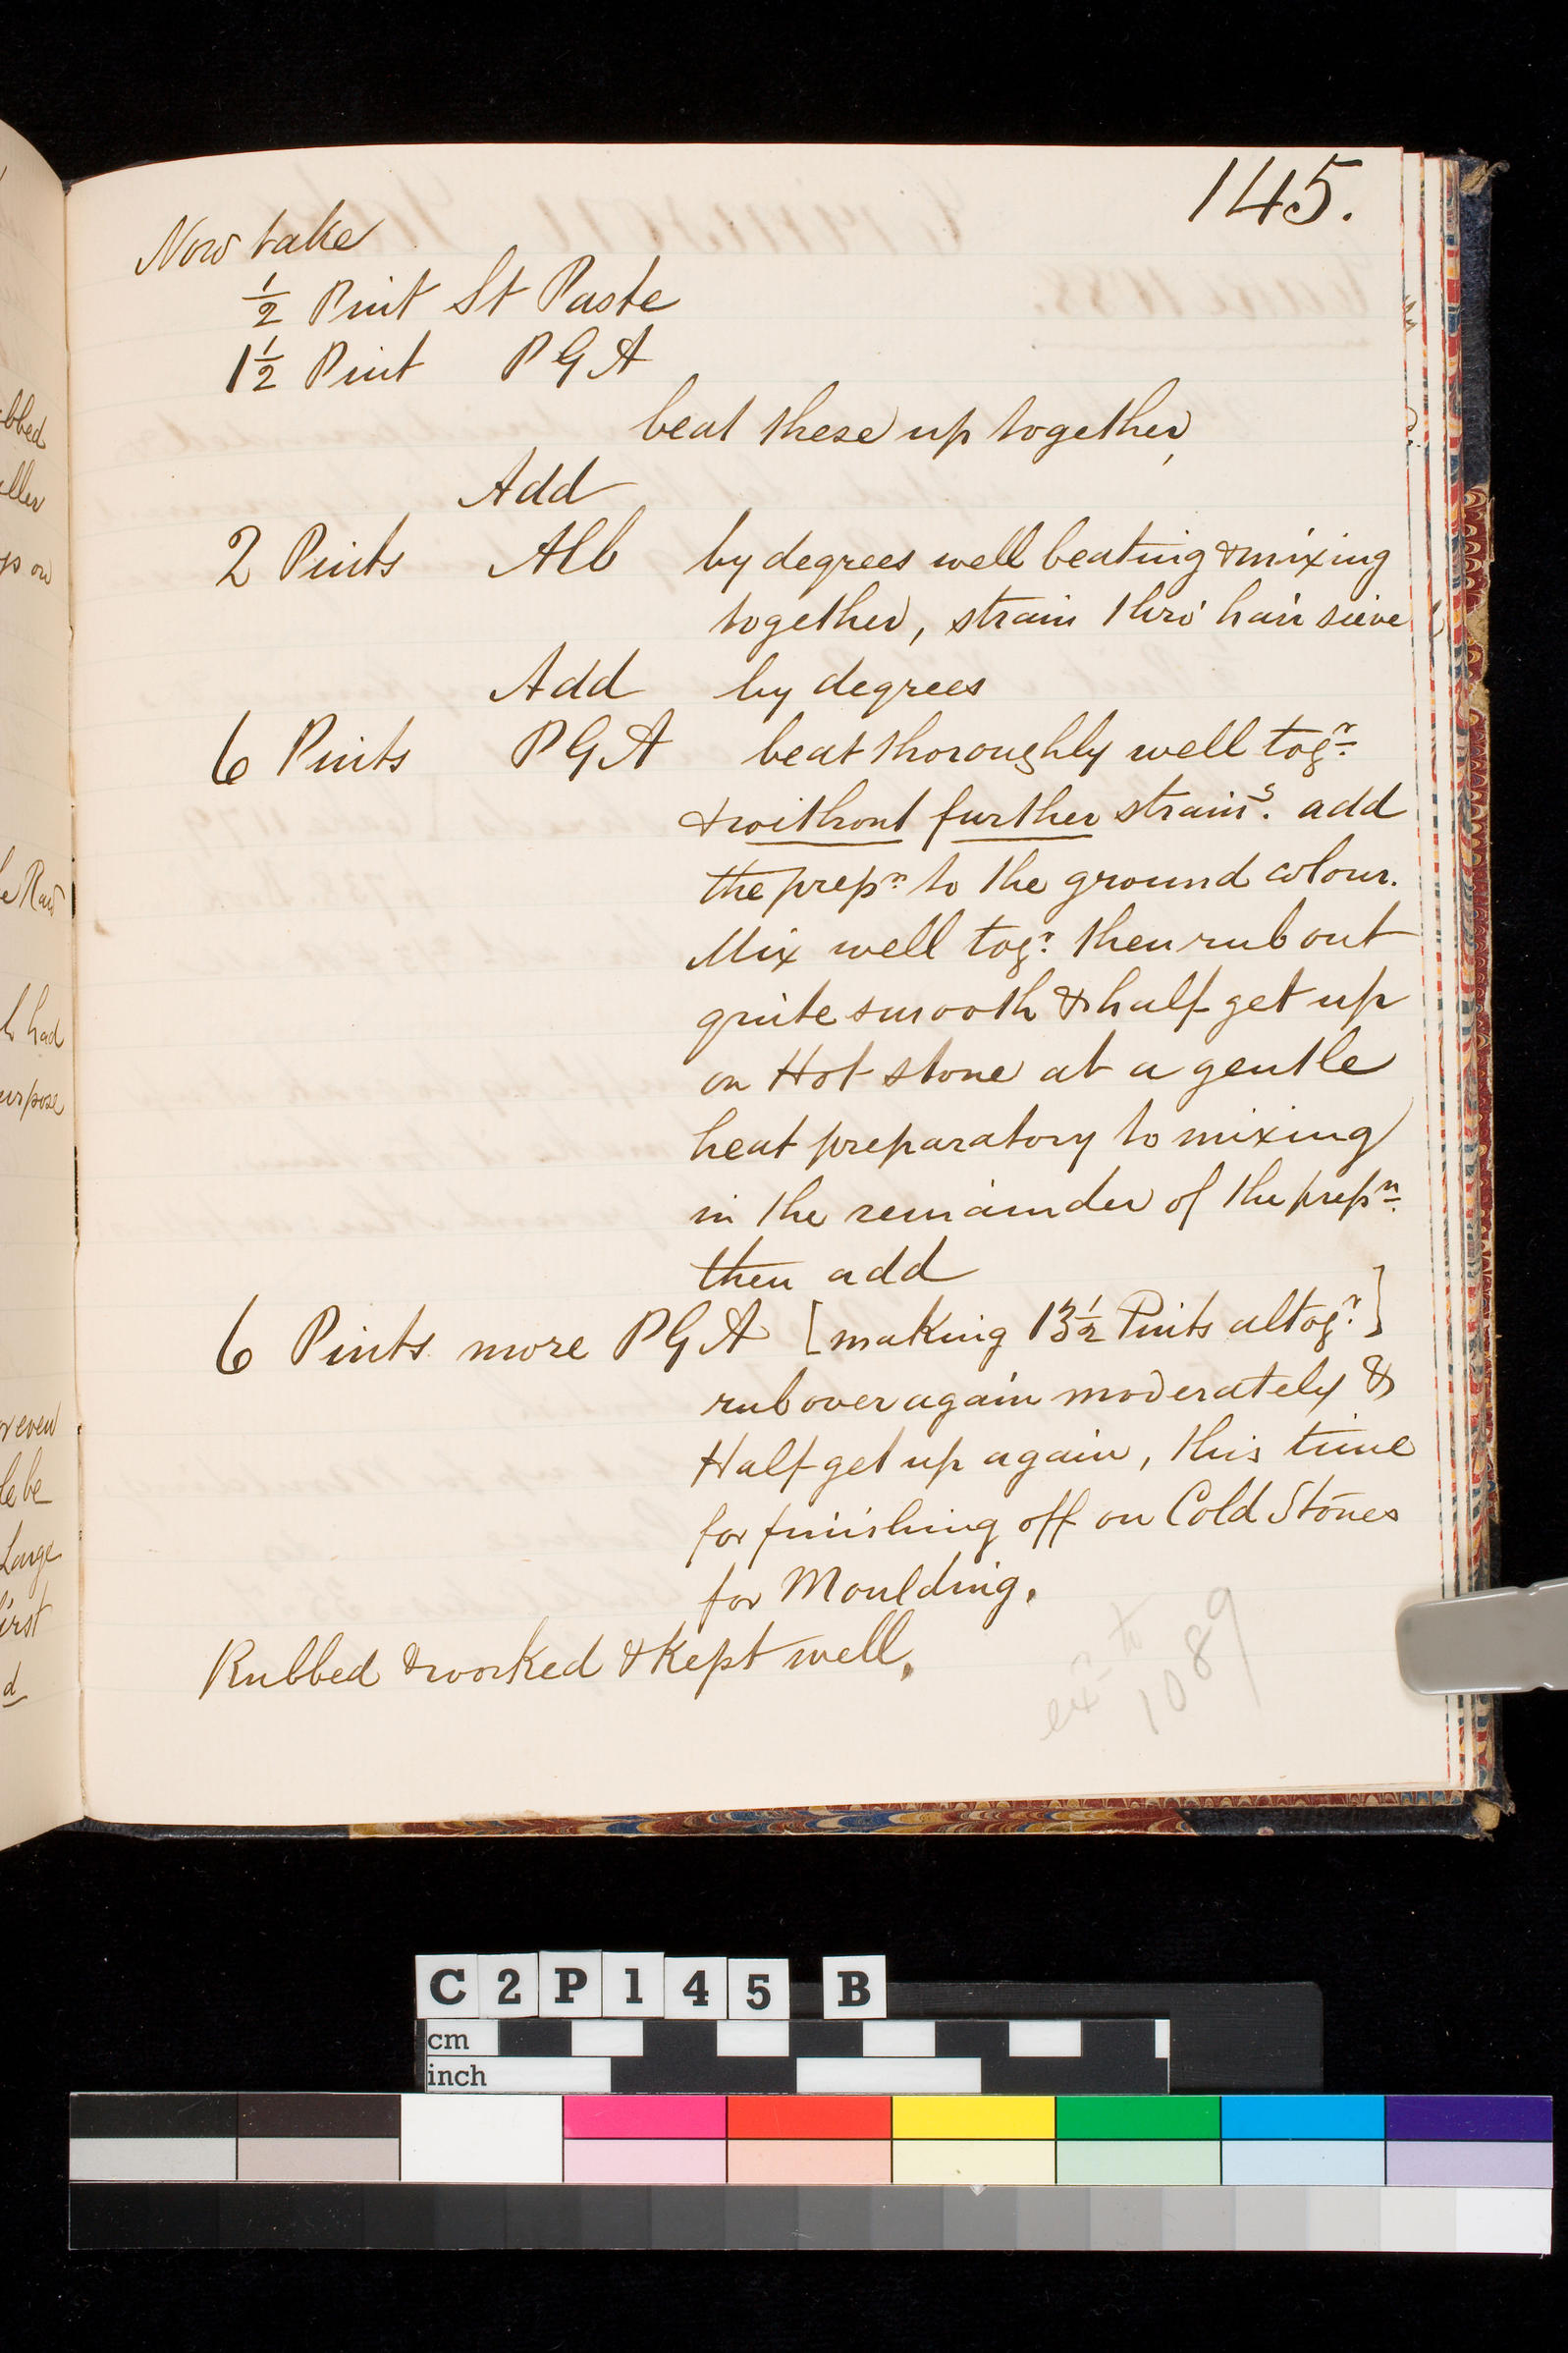 145.
Now take
½ Pint St Paste
1½ Pint P G A
beat these up together,
Add
2 Pints Alb by degrees well beating & mixing
together, strain thro' hair sieve
Add by degrees
6 Pints P G A beat thoroughly well togr
& without further strains. add
the prepn to the ground colour.
Mix well togr. then rub out
quite smooth & half get up
on Hot stone at a gentle
heat preparatory to mixing
in the remainder of the prepn.
then add
6 Pints more P G A [making 13½ Pints altogr.]
rub over again moderately &
Half get up again, this time
for finishing off on Cold Stones
for Moulding.
Rubbed & worked & kept well.
exn to
1089
bbed
had
urpose
even
be
Large
irst
d
C2P145 B
cm
inch